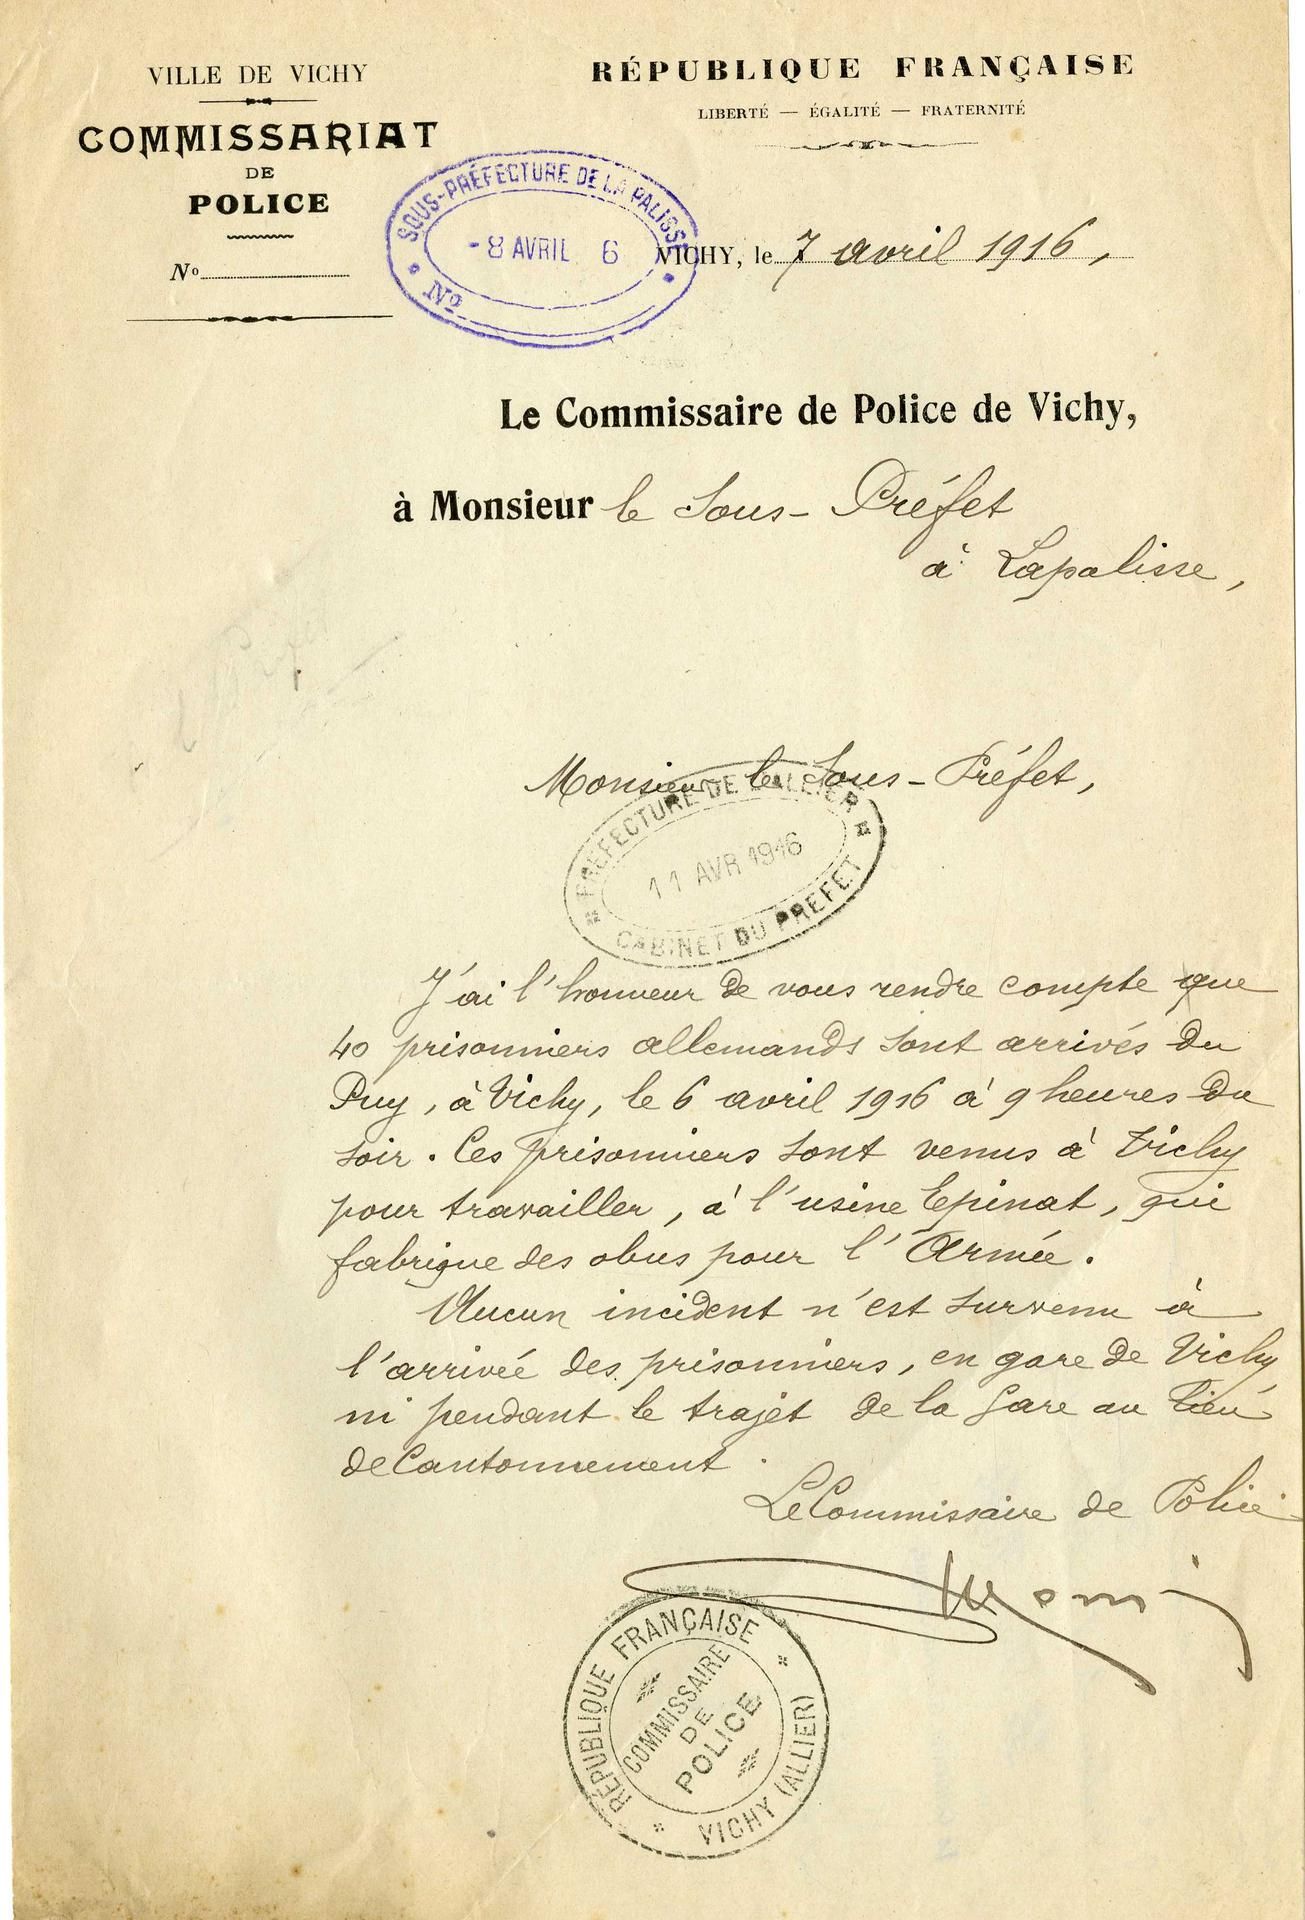 VILLE DE VICHY
COMMISSARIAT
DE
POLICE
No
RÉPUBLIQUE FRANÇAISE
LIBERTÉ — ÉGALITÉ — FRATERNITÉ
SOUS-PRÉFECTURE DE LA PALISSE
- 8 AVRIL 6
No
VICHY, le 7 avril 1916,
Le Commissaire de Police de Vichy,
à Monsieur le Sous-Préfet
à Lapalisse,
Monsieur le Sous-Préfet,
PREFECTURE DE L'ALLIER
11 AVR 1916
CABINET DU PREFET
J'ai l'honneur de vous rendre compte que
40 prisonniers allemands sont arrivés du
Puy, à Vichy, le 6 avril 1916 à 9 heures du
soir. Ces prisonniers sont venus à Vichy
pour travailler, à l'usine Epinat, qui
fabrique des obus pour l'Armée.
Aucun incident n'est survenu à
l'arrivée des prisonniers, en gare de Vichy
ni pendant le trajet de la gare au lieu
de Cantonnement.
Le Commissaire de Police
RÉPUBLIQUE FRANÇAISE
COMMISSAIRE
DE
POLICE
VICHY (ALLIER)